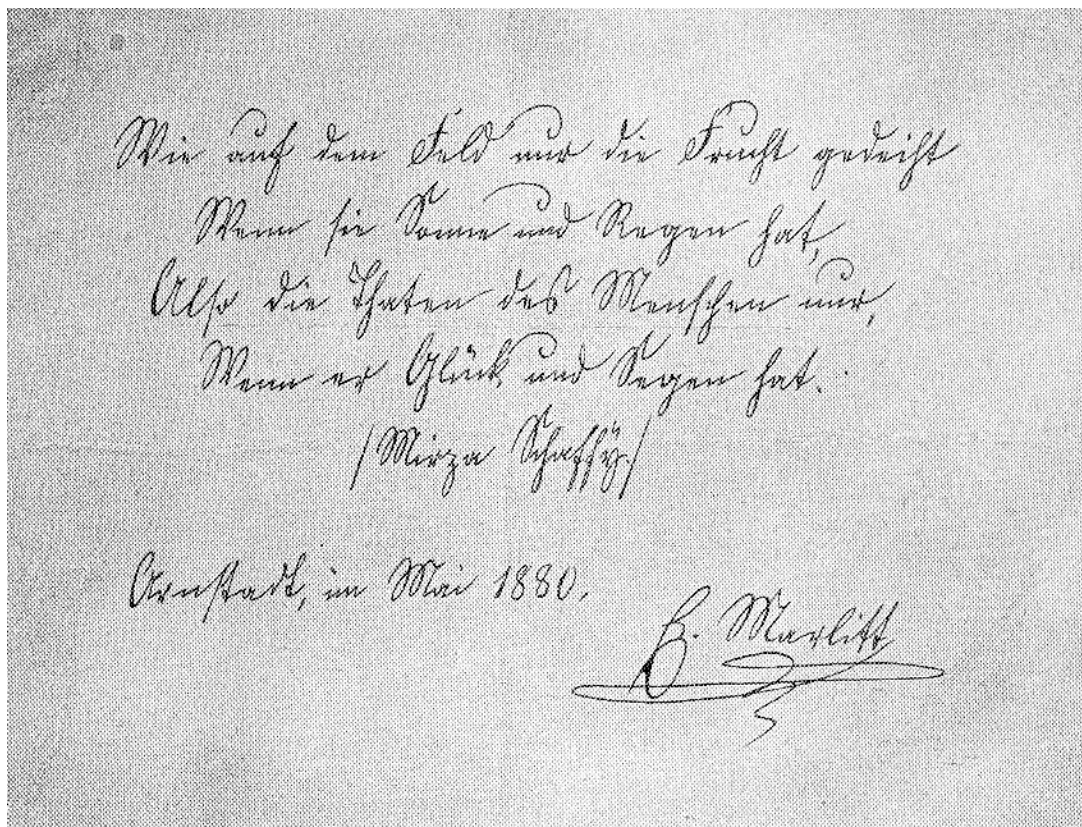 Wie auf dem Feld nur die Frucht gedeiht
Wenn sie Sonne und Regen hat,
Also die Thaten des Menschen nur,
Wenn er Glück und Segen hat.
/Mirza Schaffy./
Arnstadt, im Mai 1880.
E. Marlitt